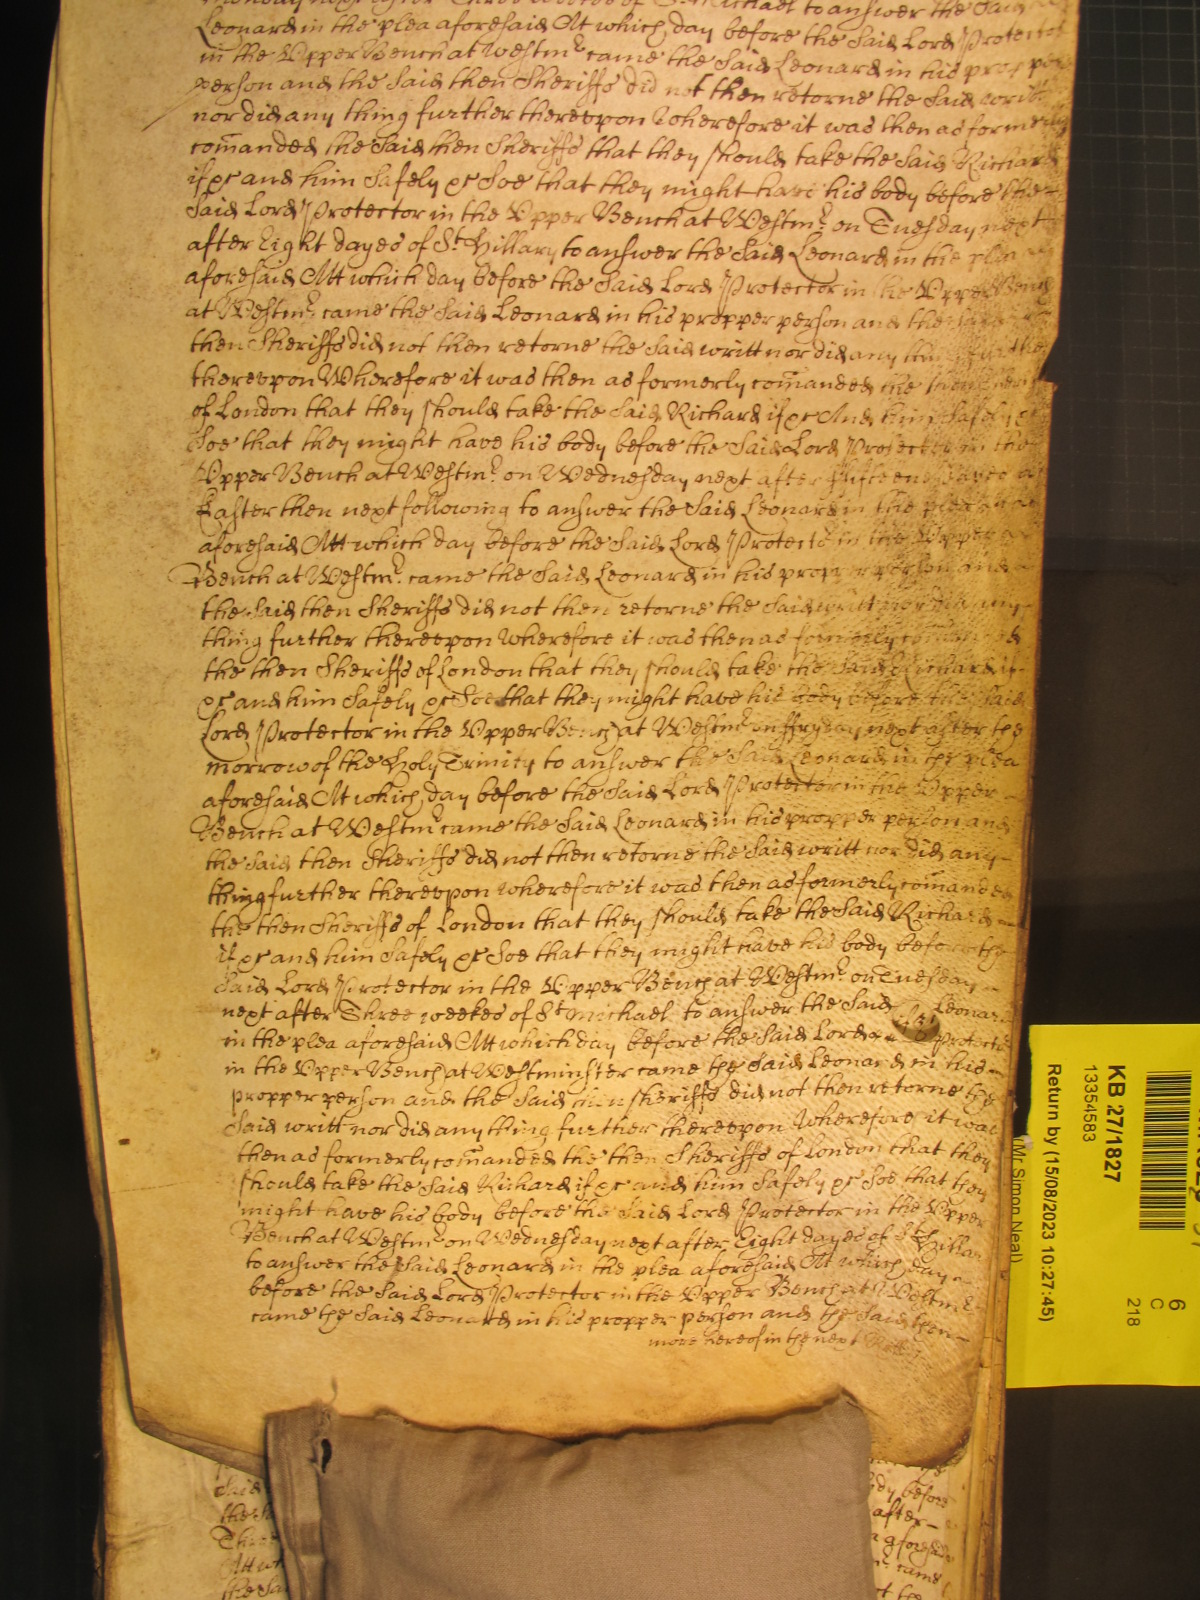 Monday next after Three weekes of St Michael to answer the Said
Leonard in the plea aforesaid At which day before the Said Lord Protector
in the Upper Bench at Westmr came the Said Leonard in his propper
person and the Said then Sheriffs did not then retorne the Said writt
nor did any thing further thereupon Wherefore it was then as formerly
comanded the Said then Sheriffs that they should take the Said Richard
if &c and him Safely &c Soe that they might have his body before the
Said Lord Protector in the Upper Bench at Westmr on Tuesday next
after Eight dayes of St Hillary to answer the Said Leonard in the plea
aforesaid Att which day before the Said Lord Protector in the Upper Bench
at Westmr came the Said Leonard in his propper person and the Said
then Sheriffs did not then retorne the Said writt nor did any thing further
thereupon Wherefore it was then as formerly comanded the then Sheriffs
of London that they should take the Said Richard if &c And him Safely &c
Soe that they might have his body before the Said Lord Protector in the
Upper Bench at Westmr on Wednesday next after fifteene dayes of
Easter then next following to answer the Said Leonard in the plea
aforesaid Att which day before the Said Lord Protector in the Upper
Bench at Westmr came the Said Leonard in his propper person and
the Said then Sheriffs did not then retorne the Said writt nor did any
thing further thereupon Wherefore it was then as formerly comanded
the then Sheriffs of London that they should take the Said Richard if
&c and him Safely &c Soe that they might have his body before the Said
Lord Protector in the Upper Bench at Westmr on ffryday next after the
morrow of the Holy Trinity to answer the Said Leonard in the plea
aforesaid At which day before the Said Lord Protector in the Upper
Bench at Westmr came the Said Leonard in his propper person and
the Said then Sheriffs did not then retorne the Said writt nor did any
thing further thereupon Wherefore it was then as formerly comanded
the then Sheriffs of London that they should take the Said Richard
if &c and him Safely &c Soe that they might have his body before the
Said Lord Protector in the Upper Bench at Westmr on Tuesday
next after Three weekes of St Michael to answer the Said Leonard
in the plea aforesaid Att which day before the Said Lord Protector
in the Upper Bench at Westminster came the Said Leonard in his
propper person and the Said then Sheriffs did not then retorne the
Said writt nor did any thing further thereupon Wherefore it was
then as formerly comanded the then Sheriffs of London that they
should take the Said Richard if &c and him Safely &c Soe that they
might have his body before the Said Lord Protector in the Upper
Bench at Westmr on Wednesday next after Eight dayes of St Hillary
to answer the Said Leonard in the plea aforesaid At which day
before the Said Lord Protector in the Upper Bench at Westmr
came the Said Leonard in his propper person and the Said then
more hereof in the next Roll
Said
Att
the Said
body before
after
aforesaid
came
KB 27/1827
13354583
Return by (15/08/2023 10:27:45)
(Mr Simon Neal)
6
C
218